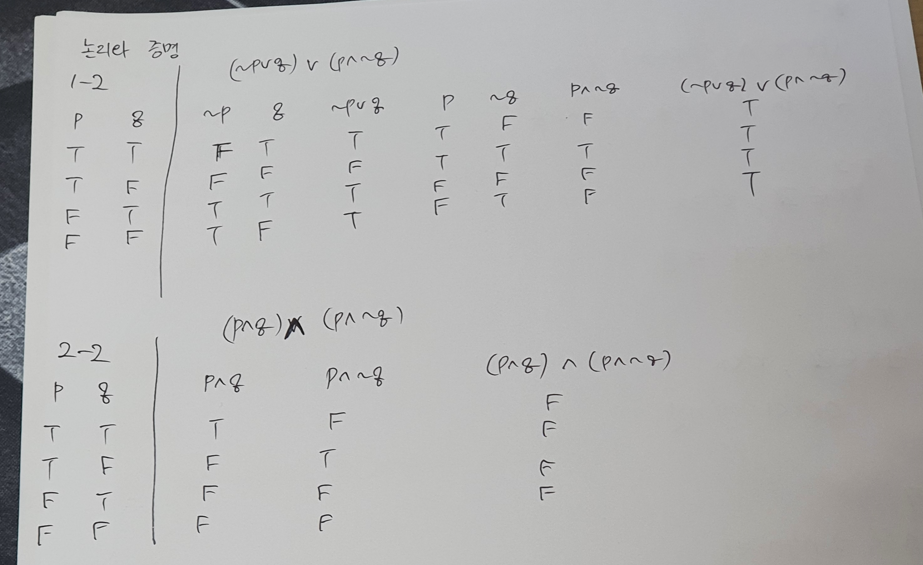 논리와 증명
1-2 (~p∨q) ∨ (p∧~q)
p q ~p q ~p∨q p ~q p∧~q (~p∨q) ∨ (p∧~q)
T T F T T T F F T
T F F F F T T T T
F T T T T F F F T
F F T F T F T F T
2-2 (p∧q)∧(p∧~q)
p q p∧q p∧~q (p∧q) ∧ (p∧~q)
T T T F F
T F F T F
F T F F F
F F F F F